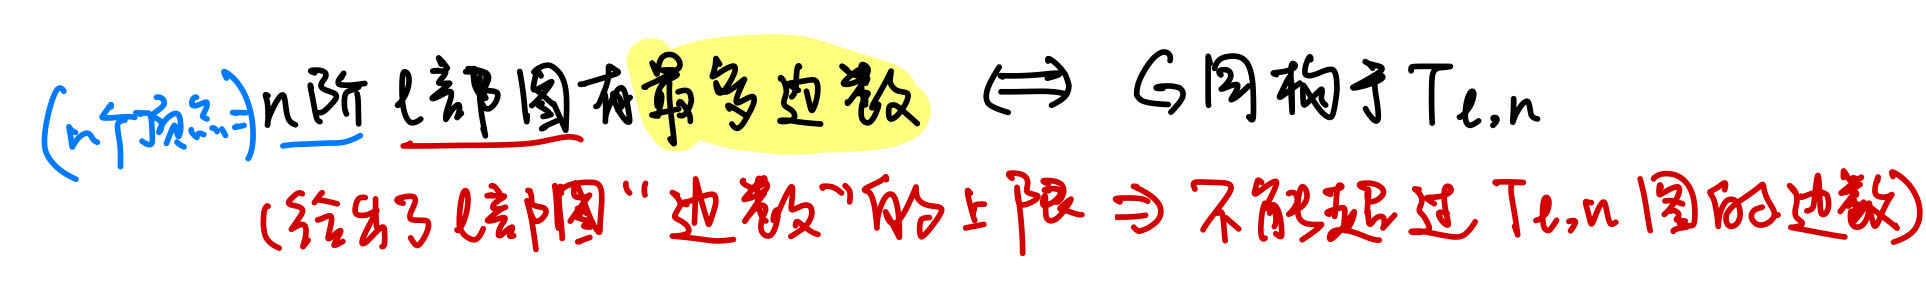 (n个顶点) n阶 ℓ部图有最多边数 ⇔ G同构于 Tℓ,n
(给出了ℓ部图“边数”的上限 ⇒ 不能超过 Tℓ,n 图的边数)